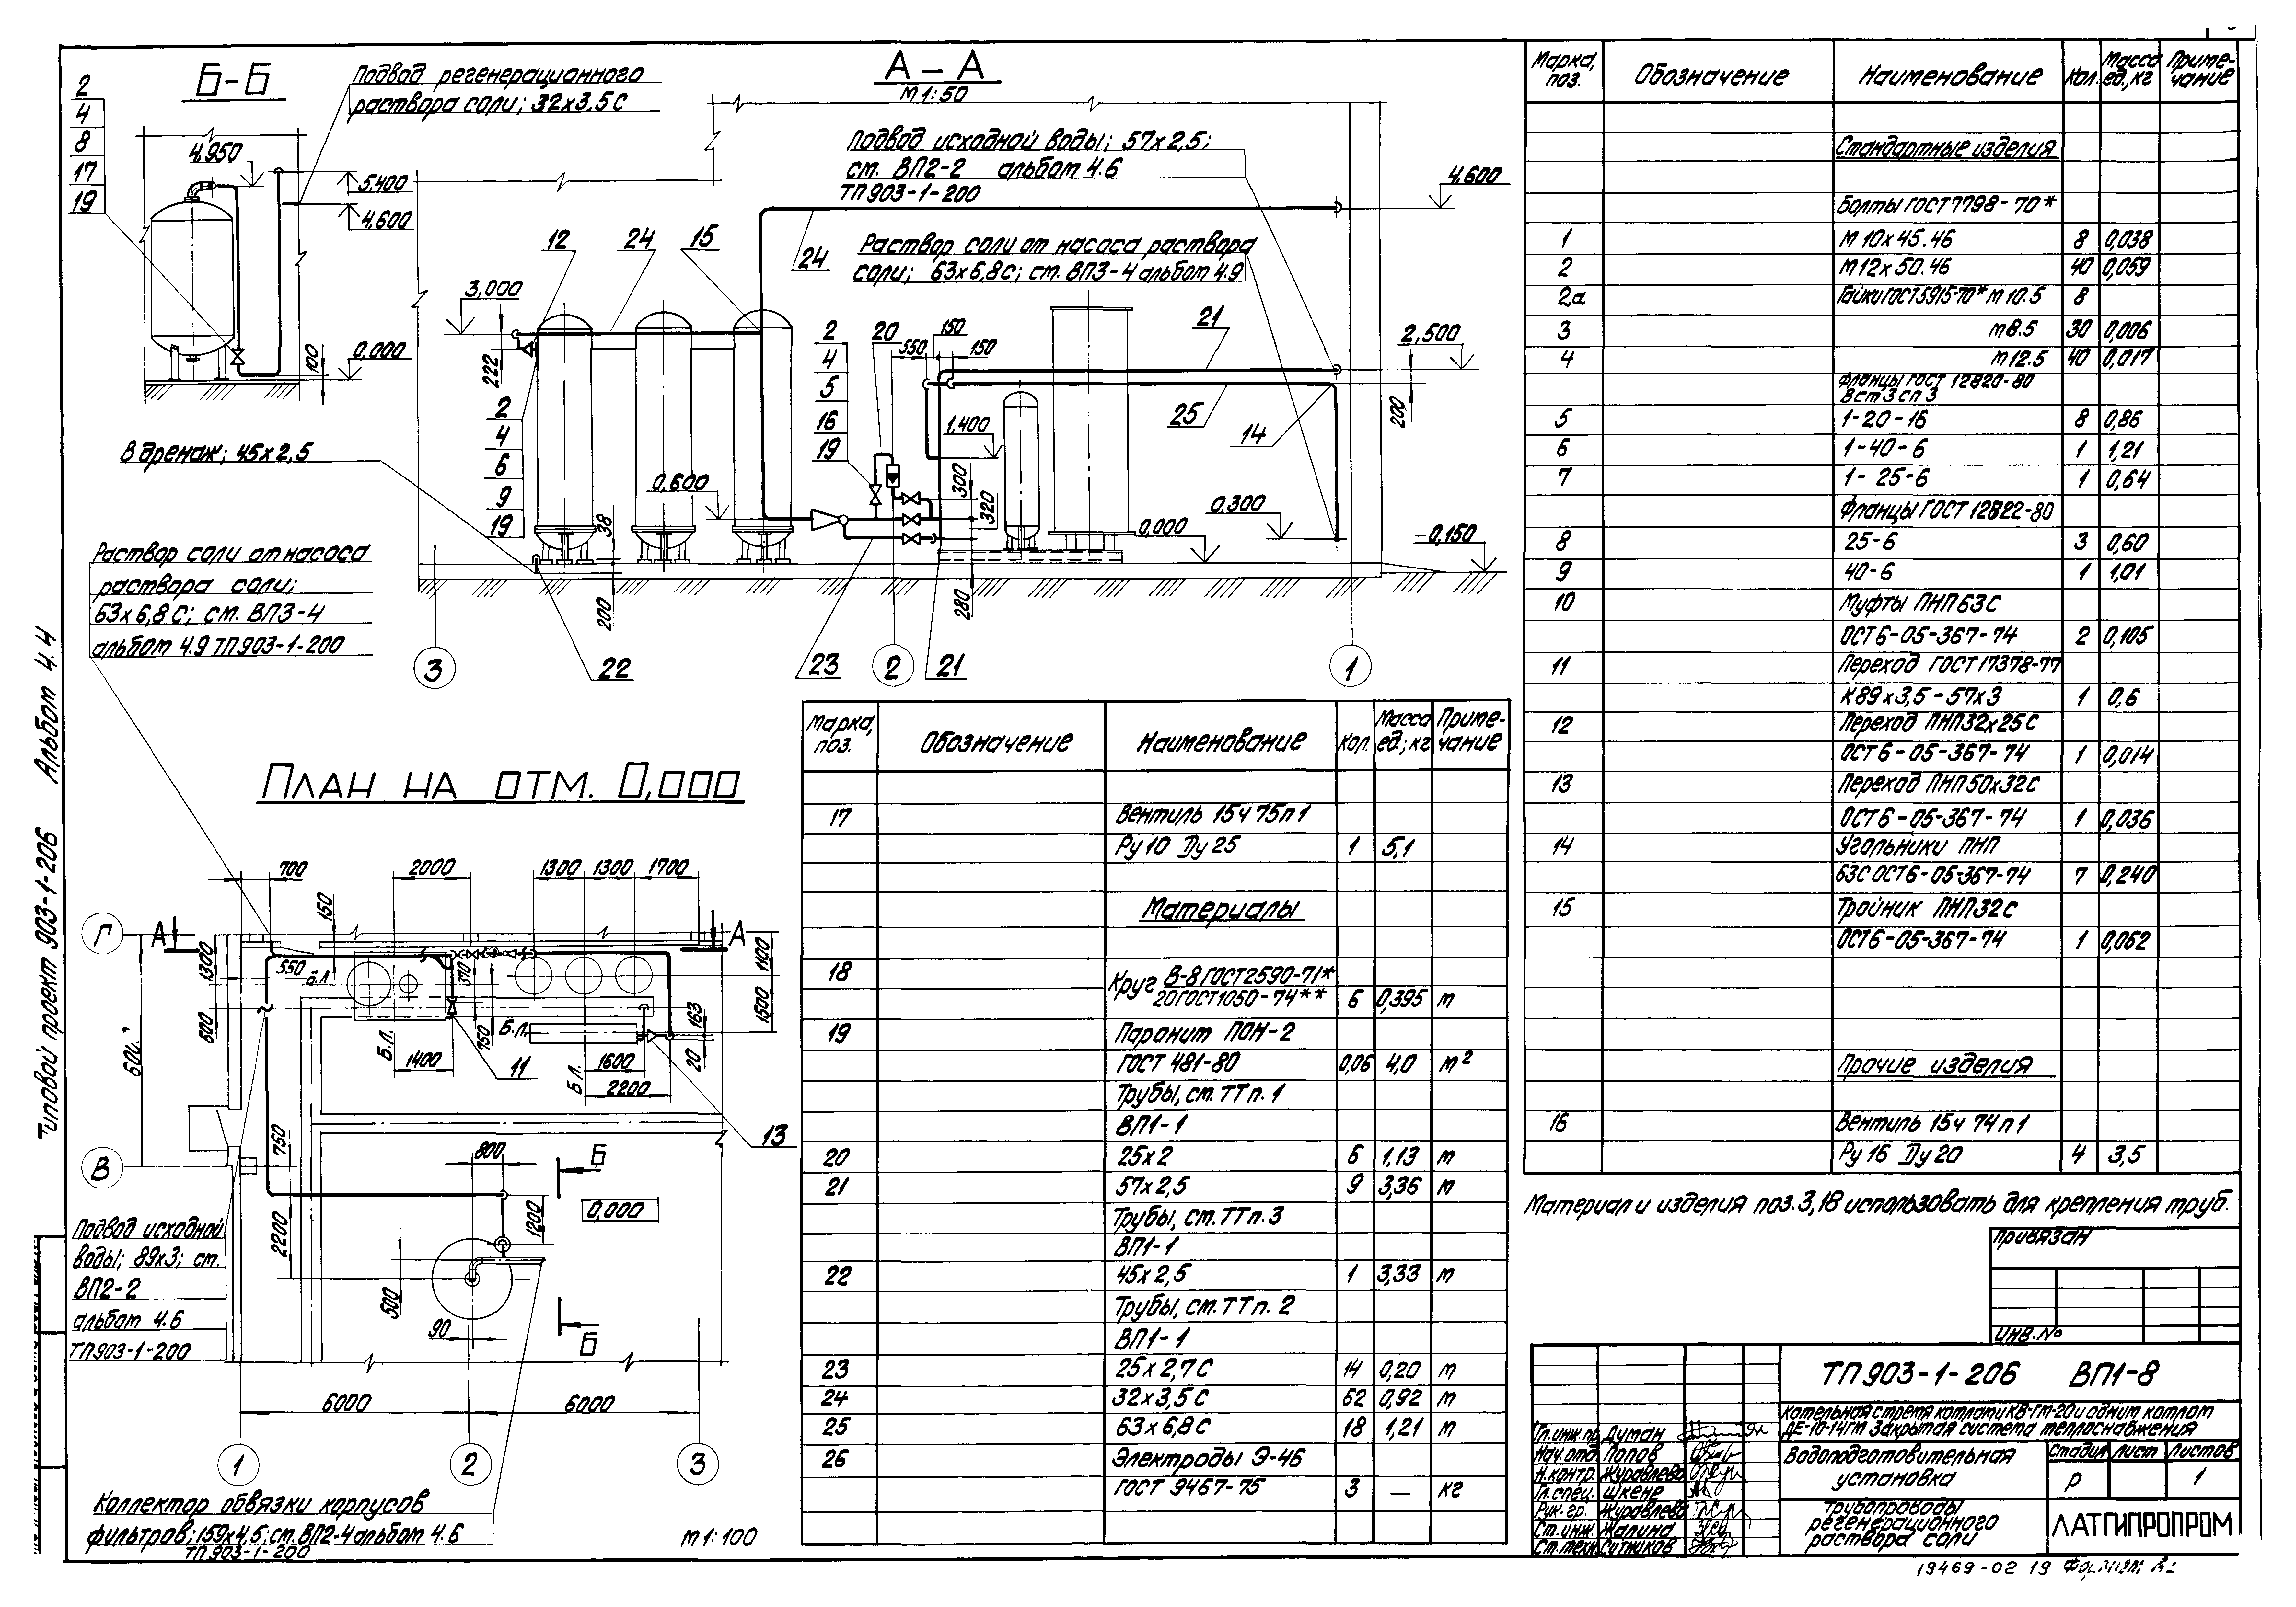 Б-Б
2
4
8
17
19
Подвод регенерационного
раствора соли; 32х3,5С
4,950
5,400
4,600
0,000
100
А-А
М 1:50
Подвод исходной воды; 57х2,5;
ст. ВП2-2 альбом 4.6
ТП903-1-200
4,600
12
24
15
24
Раствор соли от насоса раствора
соли; 63х6,8С; ст. ВП3-4 альбом 4.9
3,000
222
2
4
6
9
19
2
4
5
16
19
20
550
150
150
21
2,500
25
200
14
1,400
0,600
300
320
0,300
0,000
-0,150
38
200
280
В дренаж; 45х2,5
3
22
23
2
21
1
Раствор соли от насоса
раствора соли;
63х6,8С; ст. ВП3-4
альбом 4.9 ТП903-1-200
Типовой проект 903-1-206 Альбом 4.4
План на отм. 0,000
700
2000
1300
1300
1700
150
Г
А
А
1300
550
Б.Л.
310
1100
1500
600
Б.Л.
750
Б.Л.
163
20
1400
11
Б.Л.
1600
2200
13
750
В
800
Б
0,000
1200
2200
500
90
Б
Подвод исходной
воды; 89х3; ст.
ВП2-2
альбом 4.6
ТП903-1-200
6000
6000
1
2
3
Коллектор обвязки корпусов
фильтров; 159х4,5; ст. ВП2-4 альбом 4.6
ТП903-1-200
М 1:100
Марка, поз. Обозначение Наименование Кол. Масса ед.; кг Приме-чание
17 Вентиль 15ч 75п1
Ру 10 Ду 25 1 5,1
Материалы
18 Круг В-8 ГОСТ2590-71*
20ГОСТ1050-74** 6 0,395 м
19 Паронит ПОН-2
ГОСТ 481-80 0,06 4,0 м²
Трубы, ст. ТТ п. 1
ВП1-1
20 25х2 6 1,13 м
21 57х2,5 9 3,36 м
Трубы, ст. ТТ п. 3
ВП1-1
22 45х2,5 1 3,33 м
Трубы, ст. ТТ п. 2
ВП1-1
23 25х2,7С 14 0,20 м
24 32х3,5С 62 0,92 м
25 63х6,8С 18 1,21 м
26 Электроды Э-46
ГОСТ 9467-75 3 — кг
Марка, поз. Обозначение Наименование Кол. Масса ед., кг Приме-чание
Стандартные изделия
Болты ГОСТ7798-70*
1 М10х45.46 8 0,038
2 М12х50.46 40 0,059
2а Гайки ГОСТ5915-70* М10.5 8
3 М8.5 30 0,006
4 М12.5 40 0,017
Фланцы ГОСТ 12820-80
Вст3сп3
5 1-20-16 8 0,86
6 1-40-6 1 1,21
7 1-25-6 1 0,64
Фланцы ГОСТ 12822-80
8 25-6 3 0,60
9 40-6 1 1,01
10 Муфты ПНП63С
ОСТ6-05-367-74 2 0,105
11 Переход ГОСТ17378-77
К89х3,5-57х3 1 0,6
12 Переход ПНП32х25С
ОСТ6-05-367-74 1 0,014
13 Переход ПНП50х32С
ОСТ6-05-367-74 1 0,036
14 Угольники ПНП
63С ОСТ6-05-367-74 7 0,240
15 Тройник ПНП32С
ОСТ6-05-367-74 1 0,062
Прочие изделия
16 Вентиль 15ч 74п1
Ру 16 Ду 20 4 3,5
Материал и изделия поз. 3,18 использовать для крепления труб.
Привязан
Инв. №
ТП903-1-206 ВП1-8
Котельная с тремя котлами КВ-ГМ-20 и одним котлом
ДЕ-10-14ГМ Закрытая система теплоснабжения
Гл.инж.пр. Думан
Нач.отд. Попов
Н.контр. Журавлева
Гл.спец. Шкене
Рук.гр. Журавлева
Ст.инж. Жалина
Ст.техн. Ситников
Водоподготовительная
установка
Стадия Лист Листов
Р 1
Трубопроводы
регенерационного
раствора соли
ЛАТГИПРОПРОМ
19469-02 19